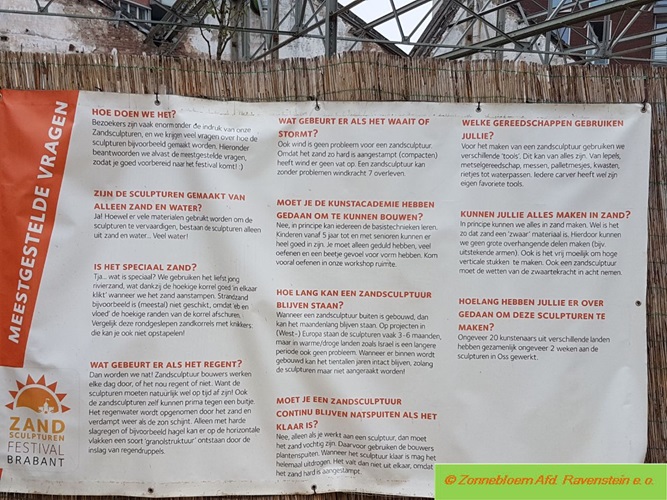 MEESTGESTELDE VRAGEN
HOE DOEN WE HET?
Bezoekers zijn vaak enorm onder de indruk van onze
Zandsculpturen, en we krijgen veel vragen over hoe de
sculpturen bijvoorbeeld gemaakt worden. Hieronder
beantwoorden we alvast de meestgestelde vragen,
zodat je goed voorbereid naar het festival komt! :)
ZIJN DE SCULPTUREN GEMAAKT VAN
ALLEEN ZAND EN WATER?
Ja! Hoewel er vele materialen gebruikt worden om de
sculpturen te vervaardigen, bestaan de sculpturen alleen
uit zand en water... Veel water!
IS HET SPECIAAL ZAND?
Tja... wat is speciaal? We gebruiken het liefst jong
rivierzand, wat dankzij de hoekige korrel goed 'in elkaar
klikt' wanneer we het zand aanstampen. Strandzand
bijvoorbeeld is (meestal) niet geschikt, omdat eb en
vloed' de hoekige randen van de korrel afschuren.
Vergelijk deze rondgeslepen zandkorrels met knikkers:
die kan je ook niet opstapelen!
WAT GEBEURT ER ALS HET REGENT?
Dan worden we nat! Zandsculptuur bouwers werken
elke dag door, of het nou regent of niet. Want de
sculpturen moeten natuurlijk wel op tijd af zijn! Ook
de zandsculpturen zelf kunnen prima tegen een buitje.
Het regenwater wordt opgenomen door het zand en
verdampt weer als de zon schijnt. Alleen met harde
slagregen of bijvoorbeeld hagel kan er op de horizontale
vlakken een soort 'granolstruktuur' ontstaan door de
inslag van regendruppels.
ZAND
SCULPTUREN
FESTIVAL
BRABANT
WAT GEBEURT ER ALS HET WAAIT OF
STORMT?
Ook wind is geen probleem voor een zandsculptuur.
Omdat het zand zo hard is aangestampt (compacten)
heeft wind er geen vat op. Een zandsculptuur kan
zonder problemen windkracht 7 overleven.
MOET JE DE KUNSTACADEMIE HEBBEN
GEDAAN OM TE KUNNEN BOUWEN?
Nee, in principe kan iedereen de basistechnieken leren.
Kinderen vanaf 5 jaar tot en met senioren kunnen er
heel goed in zijn. Je moet alleen geduld hebben, veel
oefenen en een beetje gevoel voor vorm hebben. Kom
vooral oefenen in onze workshop ruimte.
HOE LANG KAN EEN ZANDSCULPTUUR
BLIJVEN STAAN?
Wanneer een zandsculptuur buiten is gebouwd, dan
kan het maandenlang blijven staan. Op projecten in
(West-) Europa staan de sculpturen vaak 3-6 maanden,
maar in warme/droge landen zoals Israel is een langere
periode ook geen probleem. Wanneer er binnen wordt
gebouwd kan het tientallen jaren intact blijven, zolang
de sculpturen maar niet aangeraakt worden!
MOET JE EEN ZANDSCULPTUUR
CONTINU BLIJVEN NATSPUITEN ALS HET
KLAAR IS?
Nee, alleen als je werkt aan een sculptuur, dan moet
het zand vochtig zijn. Daarvoor gebruiken de bouwers
plantenspuiten. Wanneer de sculptuur klaar is mag het
helemaal uitdrogen. Het valt dan niet uit elkaar, omdat
het zand hard is aangestampt.
WELKE GEREEDSCHAPPEN GEBRUIKEN
JULLIE?
Voor het maken van een zandsculptuur gebruiken we
verschillende 'tools'. Dit kan van alles zijn. Van lepels,
metselgereedschap, messen, palletmesjes, kwasten,
rietjes tot waterpassen. Iedere carver heeft wel zijn
eigen favoriete tools.
KUNNEN JULLIE ALLES MAKEN IN ZAND?
In principe kunnen we alles in zand maken. Wel is het
zo dat zand een 'zwaar' materiaal is. Hierdoor kunnen
we geen grote overhangende delen maken (bijv.
uitstekende armen). Ook is het vrij moeilijk om hoge
verticale stukken te maken. Ook een zandsculptuur
moet de wetten van de zwaartekracht in acht nemen.
HOELANG HEBBEN JULLIE ER OVER
GEDAAN OM DEZE SCULPTUREN TE
MAKEN?
Ongeveer 20 kunstenaars uit verschillende landen
hebben gezamenlijk ongeveer 2 weken aan de
sculpturen in Oss gewerkt.
© Zonnebloem Afd. Ravenstein e. o.